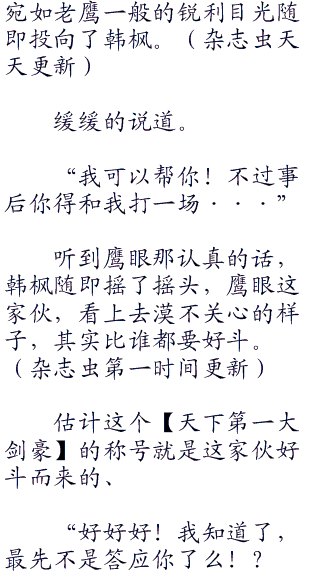 宛如老鹰一般的锐利目光随
即投向了韩枫。（杂志虫天
天更新）
缓缓的说道。
“我可以帮你！不过事
后你得和我打一场···”
听到鹰眼那认真的话，
韩枫随即摇了摇头，鹰眼这
家伙，看上去漠不关心的样
子，其实比谁都要好斗。
（杂志虫第一时间更新）
估计这个【天下第一大
剑豪】的称号就是这家伙好
斗而来的、
“好好好！我知道了，
最先不是答应你了么！？